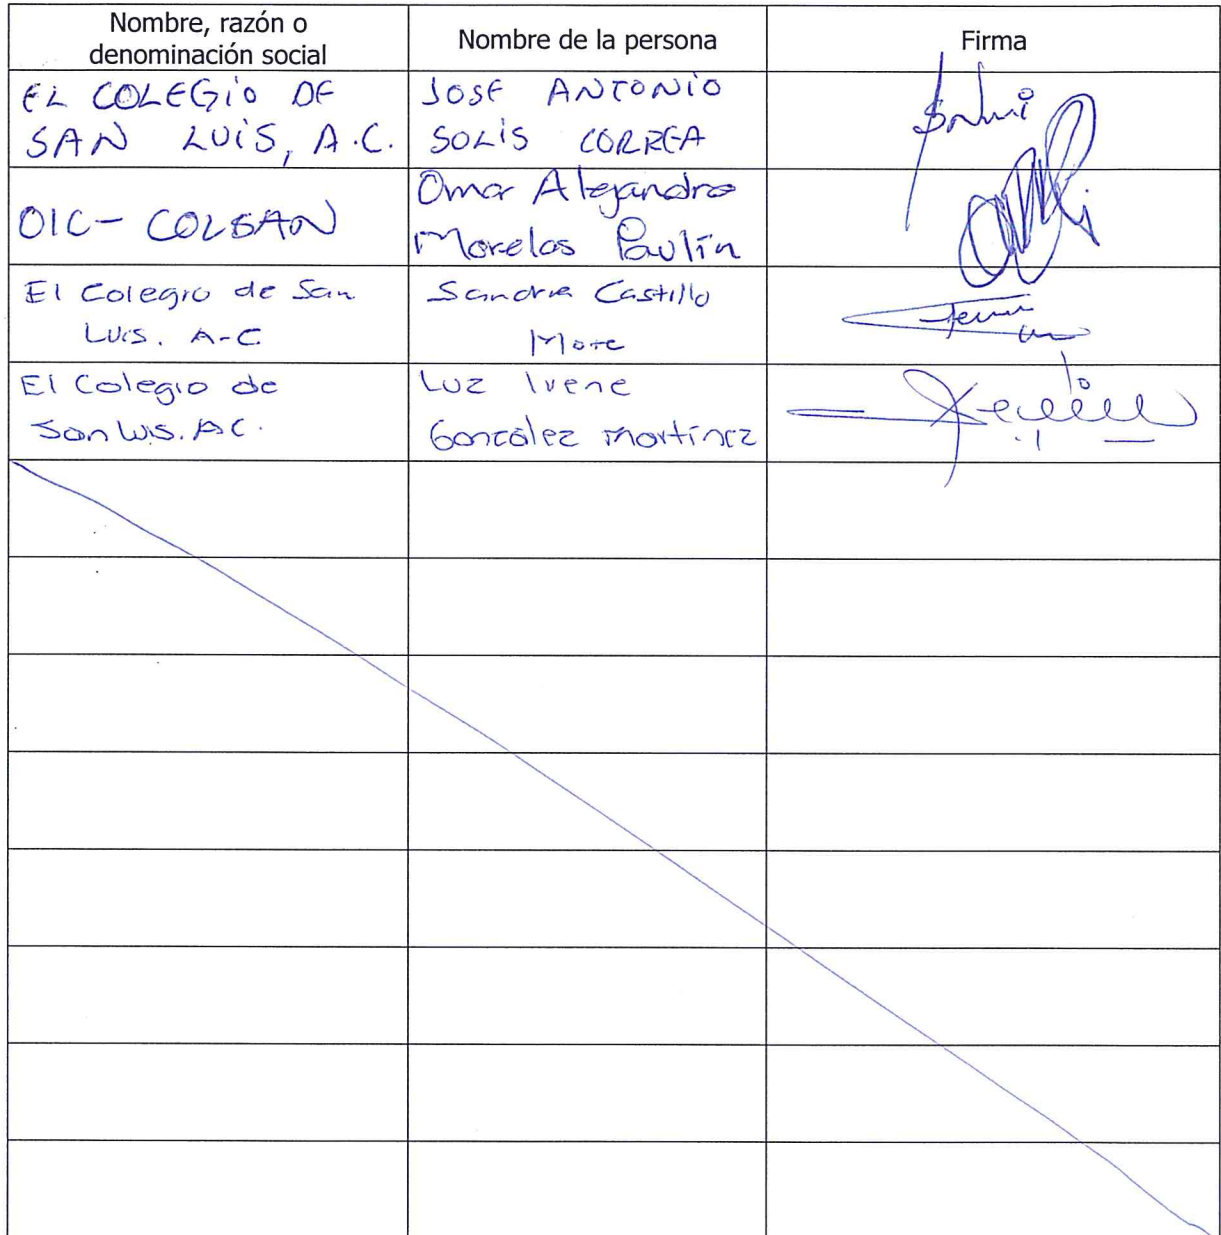 Nombre, razón o
denominación social
Nombre de la persona
Firma
EL COLEGIO DE
SAN LUIS, A.C.
JOSE ANTONIO
SOLIS CORREA
OIC- COLSAN
Omar Alejandro
Morelos Paulín
El Colegio de San
Luis. A-C
Sandra Castillo
Mata
El Colegio de
San Luis. AC.
Luz Irene
González Martínez